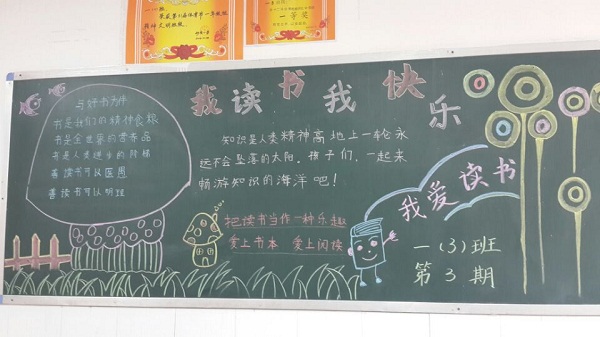 荣获
一等奖
我读书我快乐
与好书为伴
书是我们的精神食粮
书是全世界的营养品
书是人类进步的阶梯
善读书可以医愚
善读书可以明理
知识是人类精神高地上一轮永
远不会坠落的太阳。孩子们,一起来
畅游知识的海洋吧!
把读书当作一种乐趣
爱上书本 爱上阅读
我爱读书
一(3)班
第3期